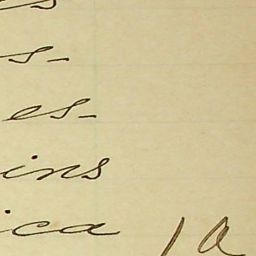 es
s-
es-
ins
ica 1a